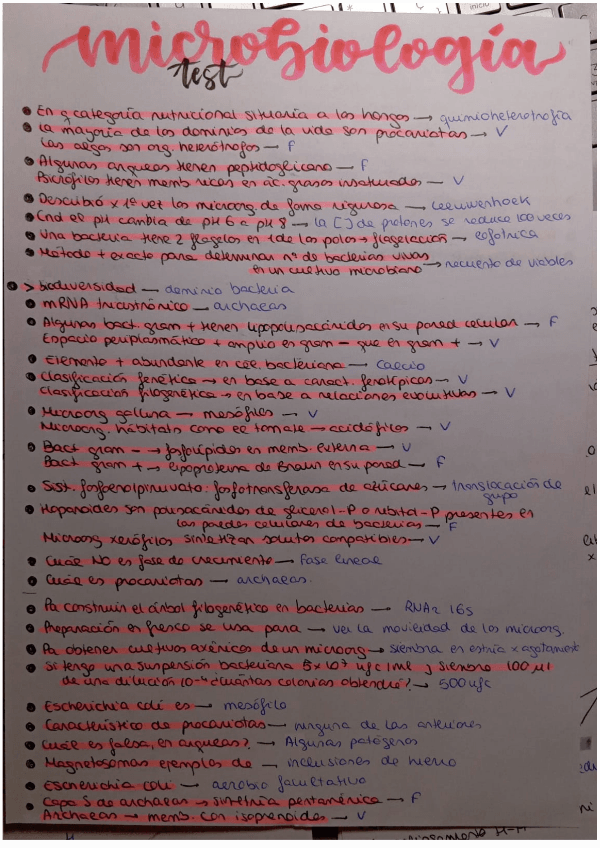 microbiología
test
• En q categoría nutricional situaría a los hongos → quimioheterotrofía
• La mayoría de los dominios de la vida son procariotas → V
Las algas son org. heterótrofos → F
• Algunas arqueas tienen peptidoglicano → F
Psicrófilos tienen memb ricas en ác. grasos insaturados → V
• Descubrió x 1ª vez los microorg de forma rigurosa → Leeuwenhoek
• Cnd el pH cambia de pH 6 a pH 8 → la [ ] de protones se reduce 100 veces
• Una bacteria tiene 2 flagelos en 1 de los polos → flagelación → lofotrica
• Método + exacto para determinar nº de bacterias vivas
en un cultivo microbiano → recuento de viables
• > biodiversidad → dominio bacteria
• mRNA tricistrónico → archaeas
• Algunas bact. gram + tienen lipopolisacáridos en su pared celular → F
Espacio periplasmático + amplio en gram - que en gram + → V
• Elemento + abundante en cél. bacteriana → calcio
• Clasificación fenética → en base a caract. fenotípicas → V
Clasificación filogenética → en base a relaciones evolutivas → V
• Microorg gallina → mesófilos → V
Microorg. hábitats como el tomate → acidófilos → V
• Bact gram - → fosfolípidos en memb. externa → V
Bact gram + → lipoproteína de Braun en su pared → F
• Sist. fosfoenolpiruvato: fosfotransferasa de azúcares → translocación de
grupo
• Hopanoides son polisacáridos de glicerol-P o ribitol-P presentes en
las paredes celulares de bacterias → F
Microorg xerófilos sintetizan solutos compatibles → V
• Cuál NO es fase de crecimiento → Fase lineal
• Cuál es procariotas → archaeas.
• Pa construir el árbol filogenético en bacterias → RNAr 16s
• Preparación en fresco se usa para → ver la movilidad de los microorg.
• Pa obtener cultivos axénicos de un microorg → siembra en estría x agotamient
• Si tengo una suspensión bacteriana 5x10⁷ ufc/ml y siembro 100 µl
de una dilución 10⁻⁴ ¿cuántas colonias obtendré? → 500 ufc
• Escherichia coli es → mesófilo
• Característico de procariotas → ninguna de las anteriores
• Cuál es falsa, en arqueas? → Algunas patógenos
• Magnetosomas ejemplos de → inclusiones de hierro
• Escherichia coli → aerobio facultativo
• Capa S de archaeas → simetría pentamérica → F
Archaeas → memb. con isoprenoides → V